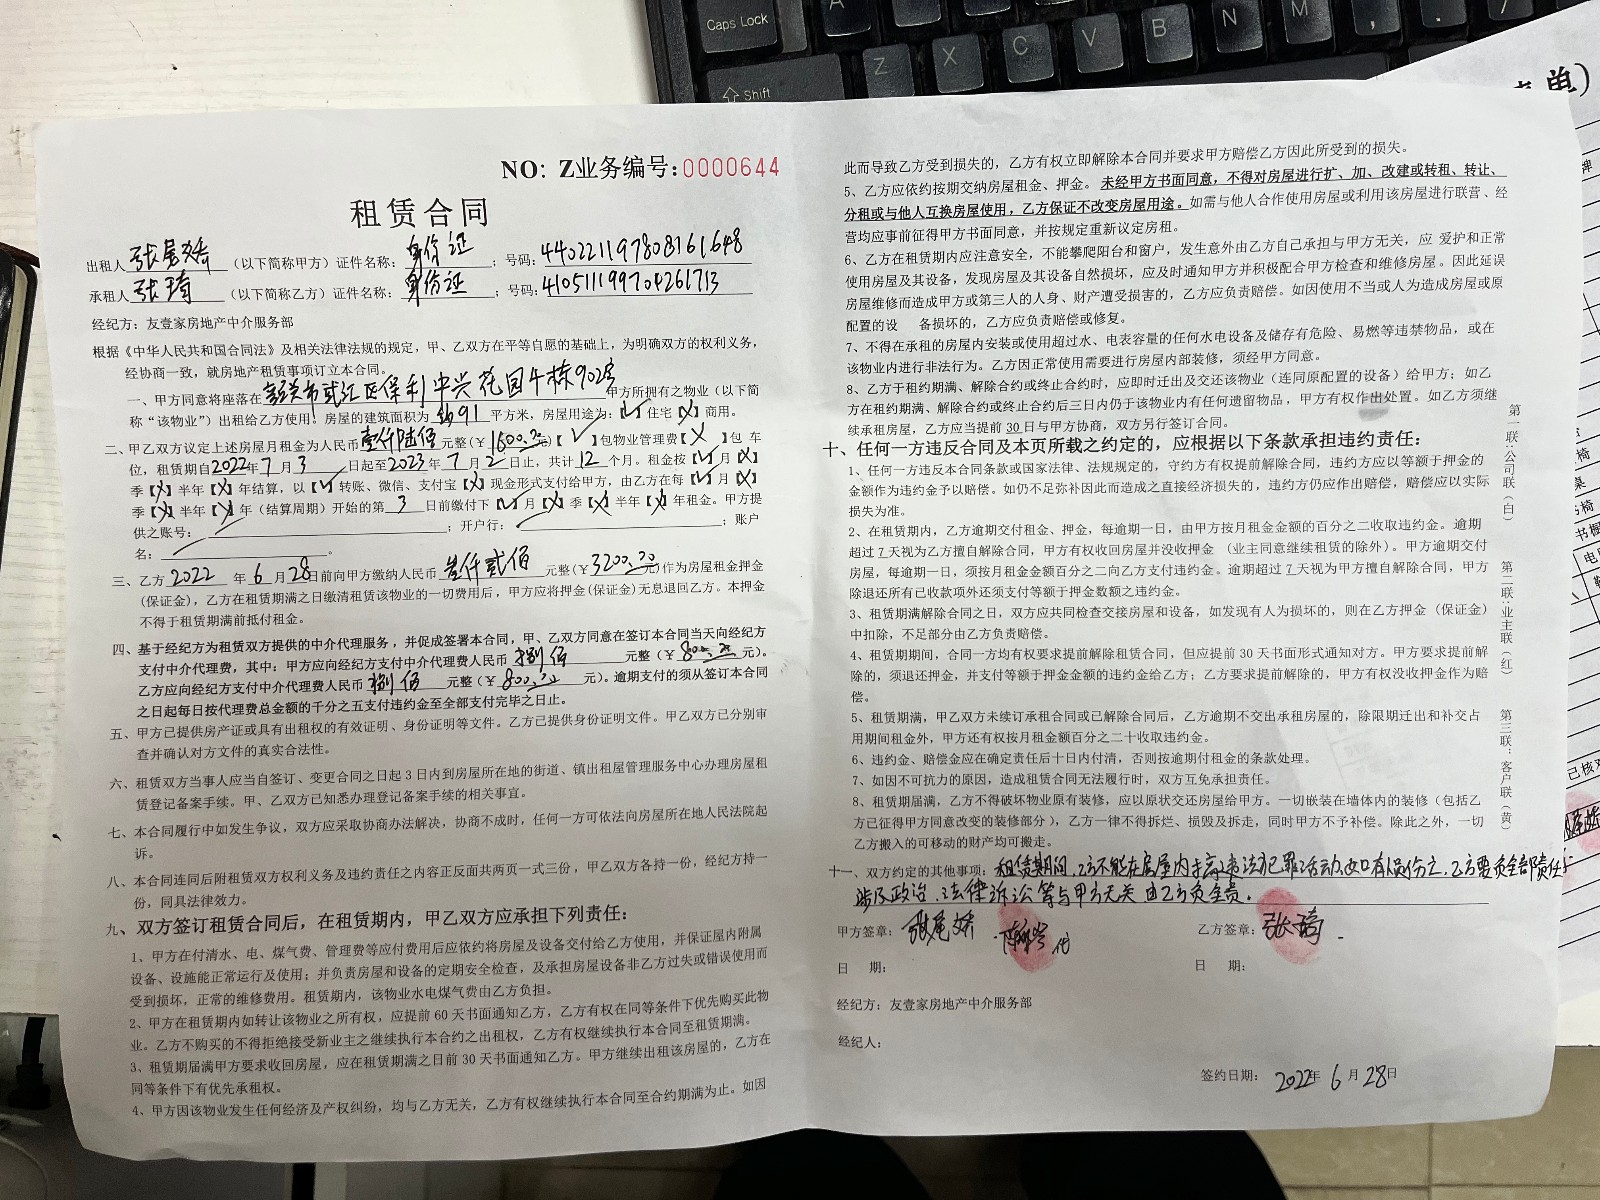 Caps Lock
A
Shift
Z
X
C
V
B
N
M
单）
NO: Z业务编号:0000644
租赁合同
出租人（以下简称甲方）证件名称：身份证；号码:440221197808161648
承租人张琦（以下简称乙方）证件名称：身份证；号码:410511199704261713
经纪方：友壹家房地产中介服务部
根据《中华人民共和国合同法》及相关法律法规的规定，甲、乙双方在平等自愿的基础上，为明确双方的权利义务，
经协商一致，就房地产租赁事项订立本合同。
一、甲方同意将座落在韶关市武江区保利中兴花园4栋902房甲方所拥有之物业（以下简
称“该物业”）出租给乙方使用。房屋的建筑面积为91平方米，房屋用途为：【✓】住宅【X】商用。
二、甲乙双方议定上述房屋月租金为人民币壹仟陆佰元整（￥1600.00元）【✓】包物业管理费【X】包 车
位，租赁期自2022年7月3日起至2023年7月2日止，共计12个月。租金按【✓】月【X】
季【X】半年【X】年结算，以【✓】转账、微信、支付宝【X】现金形式支付给甲方，由乙方在每【✓】月【X】
季【X】半年【X】年（结算周期）开始的第3日前缴付下【✓】月【X】季【X】半年【X】年租金。甲方提
供之账号：；开户行：；账户
名：。
三、乙方2022年6月28日前向甲方缴纳人民币叁仟贰佰元整（￥3200.00元）作为房屋租金押金
（保证金），乙方在租赁期满之日缴清租赁该物业的一切费用后，甲方应将押金(保证金)无息退回乙方。本押金
不得于租赁期满前抵付租金。
四、基于经纪方为租赁双方提供的中介代理服务，并促成签署本合同，甲、乙双方同意在签订本合同当天向经纪方
支付中介代理费，其中：甲方应向经纪方支付中介代理费人民币捌佰元整（￥800.00元）。
乙方应向经纪方支付中介代理费人民币捌佰元整（￥800.00元）。逾期支付的须从签订本合同
之日起每日按代理费总金额的千分之五支付违约金至全部支付完毕之日止。
五、甲方已提供房产证或具有出租权的有效证明、身份证明等文件。乙方已提供身份证明文件。甲乙双方已分别审
查并确认对方文件的真实合法性。
六、租赁双方当事人应当自签订、变更合同之日起3日内到房屋所在地的街道、镇出租屋管理服务中心办理房屋租
赁登记备案手续。甲、乙双方已知悉办理登记备案手续的相关事宜。
七、本合同履行中如发生争议，双方应采取协商办法解决，协商不成时，任何一方可依法向房屋所在地人民法院起
诉。
八、本合同连同后附租赁双方权利义务及违约责任之内容正反面共两页一式三份，甲乙双方各持一份，经纪方持一
份，同具法律效力。
九、双方签订租赁合同后，在租赁期内，甲乙双方应承担下列责任：
1、甲方在付清水、电、煤气费、管理费等应付费用后应依约将房屋及设备交付给乙方使用，并保证屋内附属
设备、设施能正常运行及使用；并负责房屋和设备的定期安全检查，及承担房屋设备非乙方过失或错误使用而
受到损坏，正常的维修费用。租赁期内，该物业水电煤气费由乙方负担。
2、甲方在租赁期内如转让该物业之所有权，应提前60天书面通知乙方，乙方有权在同等条件下优先购买此物
业。乙方不购买的不得拒绝接受新业主之继续执行本合约之出租权，乙方有权继续执行本合同至租赁期满。
3、租赁期届满甲方要求收回房屋，应在租赁期满之日前30天书面通知乙方。甲方继续出租该房屋的，乙方在
同等条件下有优先承租权。
4、甲方因该物业发生任何经济及产权纠纷，均与乙方无关，乙方有权继续执行本合同至合约期满为止。如因
此而导致乙方受到损失的，乙方有权立即解除本合同并要求甲方赔偿乙方因此所受到的损失。
5、乙方应依约按期交纳房屋租金、押金。未经甲方书面同意，不得对房屋进行扩、加、改建或转租、转让、
分租或与他人互换房屋使用，乙方保证不改变房屋用途。如需与他人合作使用房屋或利用该房屋进行联营、经
营均应事前征得甲方书面同意，并按规定重新议定房租。
6、乙方在租赁期内应注意安全，不能攀爬阳台和窗户，发生意外由乙方自己承担与甲方无关，应 爱护和正常
使用房屋及其设备，发现房屋及其设备自然损坏，应及时通知甲方并积极配合甲方检查和维修房屋。因此延误
房屋维修而造成甲方或第三人的人身、财产遭受损害的，乙方应负责赔偿。如因使用不当或人为造成房屋或原
配置的设 备损坏的，乙方应负责赔偿或修复。
7、不得在承租的房屋内安装或使用超过水、电表容量的任何水电设备及储存有危险、易燃等违禁物品，或在
该物业内进行非法行为。乙方因正常使用需要进行房屋内部装修，须经甲方同意。
8、乙方于租约期满、解除合约或终止合约时，应即时迁出及交还该物业（连同原配置的设备）给甲方；如乙
方在租约期满、解除合约或终止合约后三日内仍于该物业内有任何遗留物品，甲方有权作出处置。如乙方须继
续承租房屋，乙方应当提前30日与甲方协商，双方另行签订合同。
十、任何一方违反合同及本页所载之约定的，应根据以下条款承担违约责任：
1、任何一方违反本合同条款或国家法律、法规规定的，守约方有权提前解除合同，违约方应以等额于押金的
金额作为违约金予以赔偿。如仍不足弥补因此而造成之直接经济损失的，违约方仍应作出赔偿，赔偿应以实际
损失为准。
2、在租赁期内，乙方逾期交付租金、押金，每逾期一日，由甲方按月租金金额的百分之二收取违约金。逾期
超过7天视为乙方擅自解除合同，甲方有权收回房屋并没收押金 （业主同意继续租赁的除外）。甲方逾期交付
房屋，每逾期一日，须按月租金金额百分之二向乙方支付违约金。逾期超过7天视为甲方擅自解除合同，甲方
除退还所有已收款项外还须支付等额于押金数额之违约金。
3、租赁期满解除合同之日，双方应共同检查交接房屋和设备，如发现有人为损坏的，则在乙方押金（保证金）
中扣除，不足部分由乙方负责赔偿。
4、租赁期期间，合同一方均有权要求提前解除租赁合同，但应提前30天书面形式通知对方。甲方要求提前解
除的，须退还押金，并支付等额于押金金额的违约金给乙方；乙方要求提前解除的，甲方有权没收押金作为赔
偿。
5、租赁期满，甲乙双方未续订承租合同或已解除合同后，乙方逾期不交出承租房屋的，除限期迁出和补交占
用期间租金外，甲方还有权按月租金额百分之二十收取违约金。
6、违约金、赔偿金应在确定责任后十日内付清，否则按逾期付租金的条款处理。
7、如因不可抗力的原因，造成租赁合同无法履行时，双方互免承担责任。
8、租赁期届满，乙方不得破坏物业原有装修，应以原状交还房屋给甲方。一切嵌装在墙体内的装修（包括乙
方已征得甲方同意改变的装修部分），乙方一律不得拆烂、损毁及拆走，同时甲方不予补偿。除此之外，一切
乙方搬入的可移动的财产均可搬走。
十一、双方约定的其他事项：租赁期间，乙方不能在房屋内搞违法犯罪活动，如有人员伤亡，乙方要负全部责任，
涉及政治、法律诉讼等与甲方无关，由乙方负全责。
甲方签章：代
乙方签章：张琦
日 期：
日 期：
经纪方：友壹家房地产中介服务部
经纪人：
签约日期：2022年6月28日
第一联：公司联（白）
第二联：业主联（红）
第三联：客户联（黄）
牌
椅
桌
椅
书橱
已核对